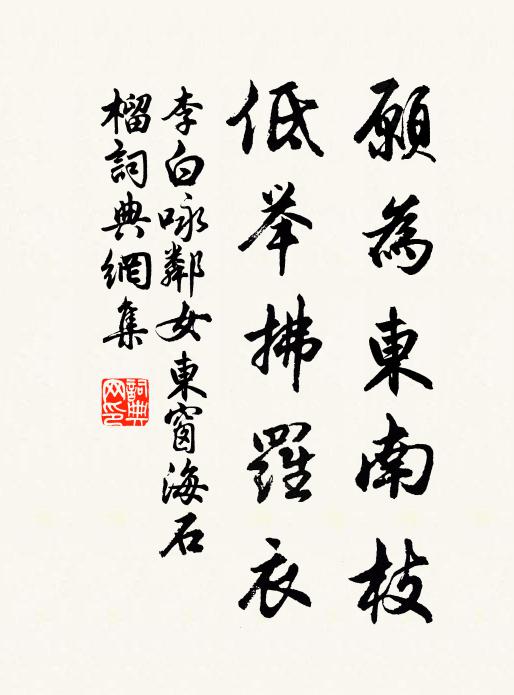 願為東南枝
低举拂羅衣
李白咏鄰女東窗海石
榴詞典網集
詞典网印